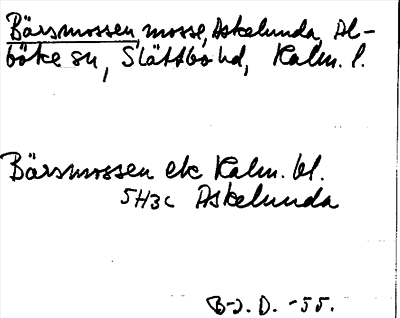 Bärsmossen, mosse, Askelunda, Al-
böke sn, Slättbo hd, Kalm. l.
Bärsmossen ek Kalm. bl.
5H3c Askelunda
B-J. D. -55.